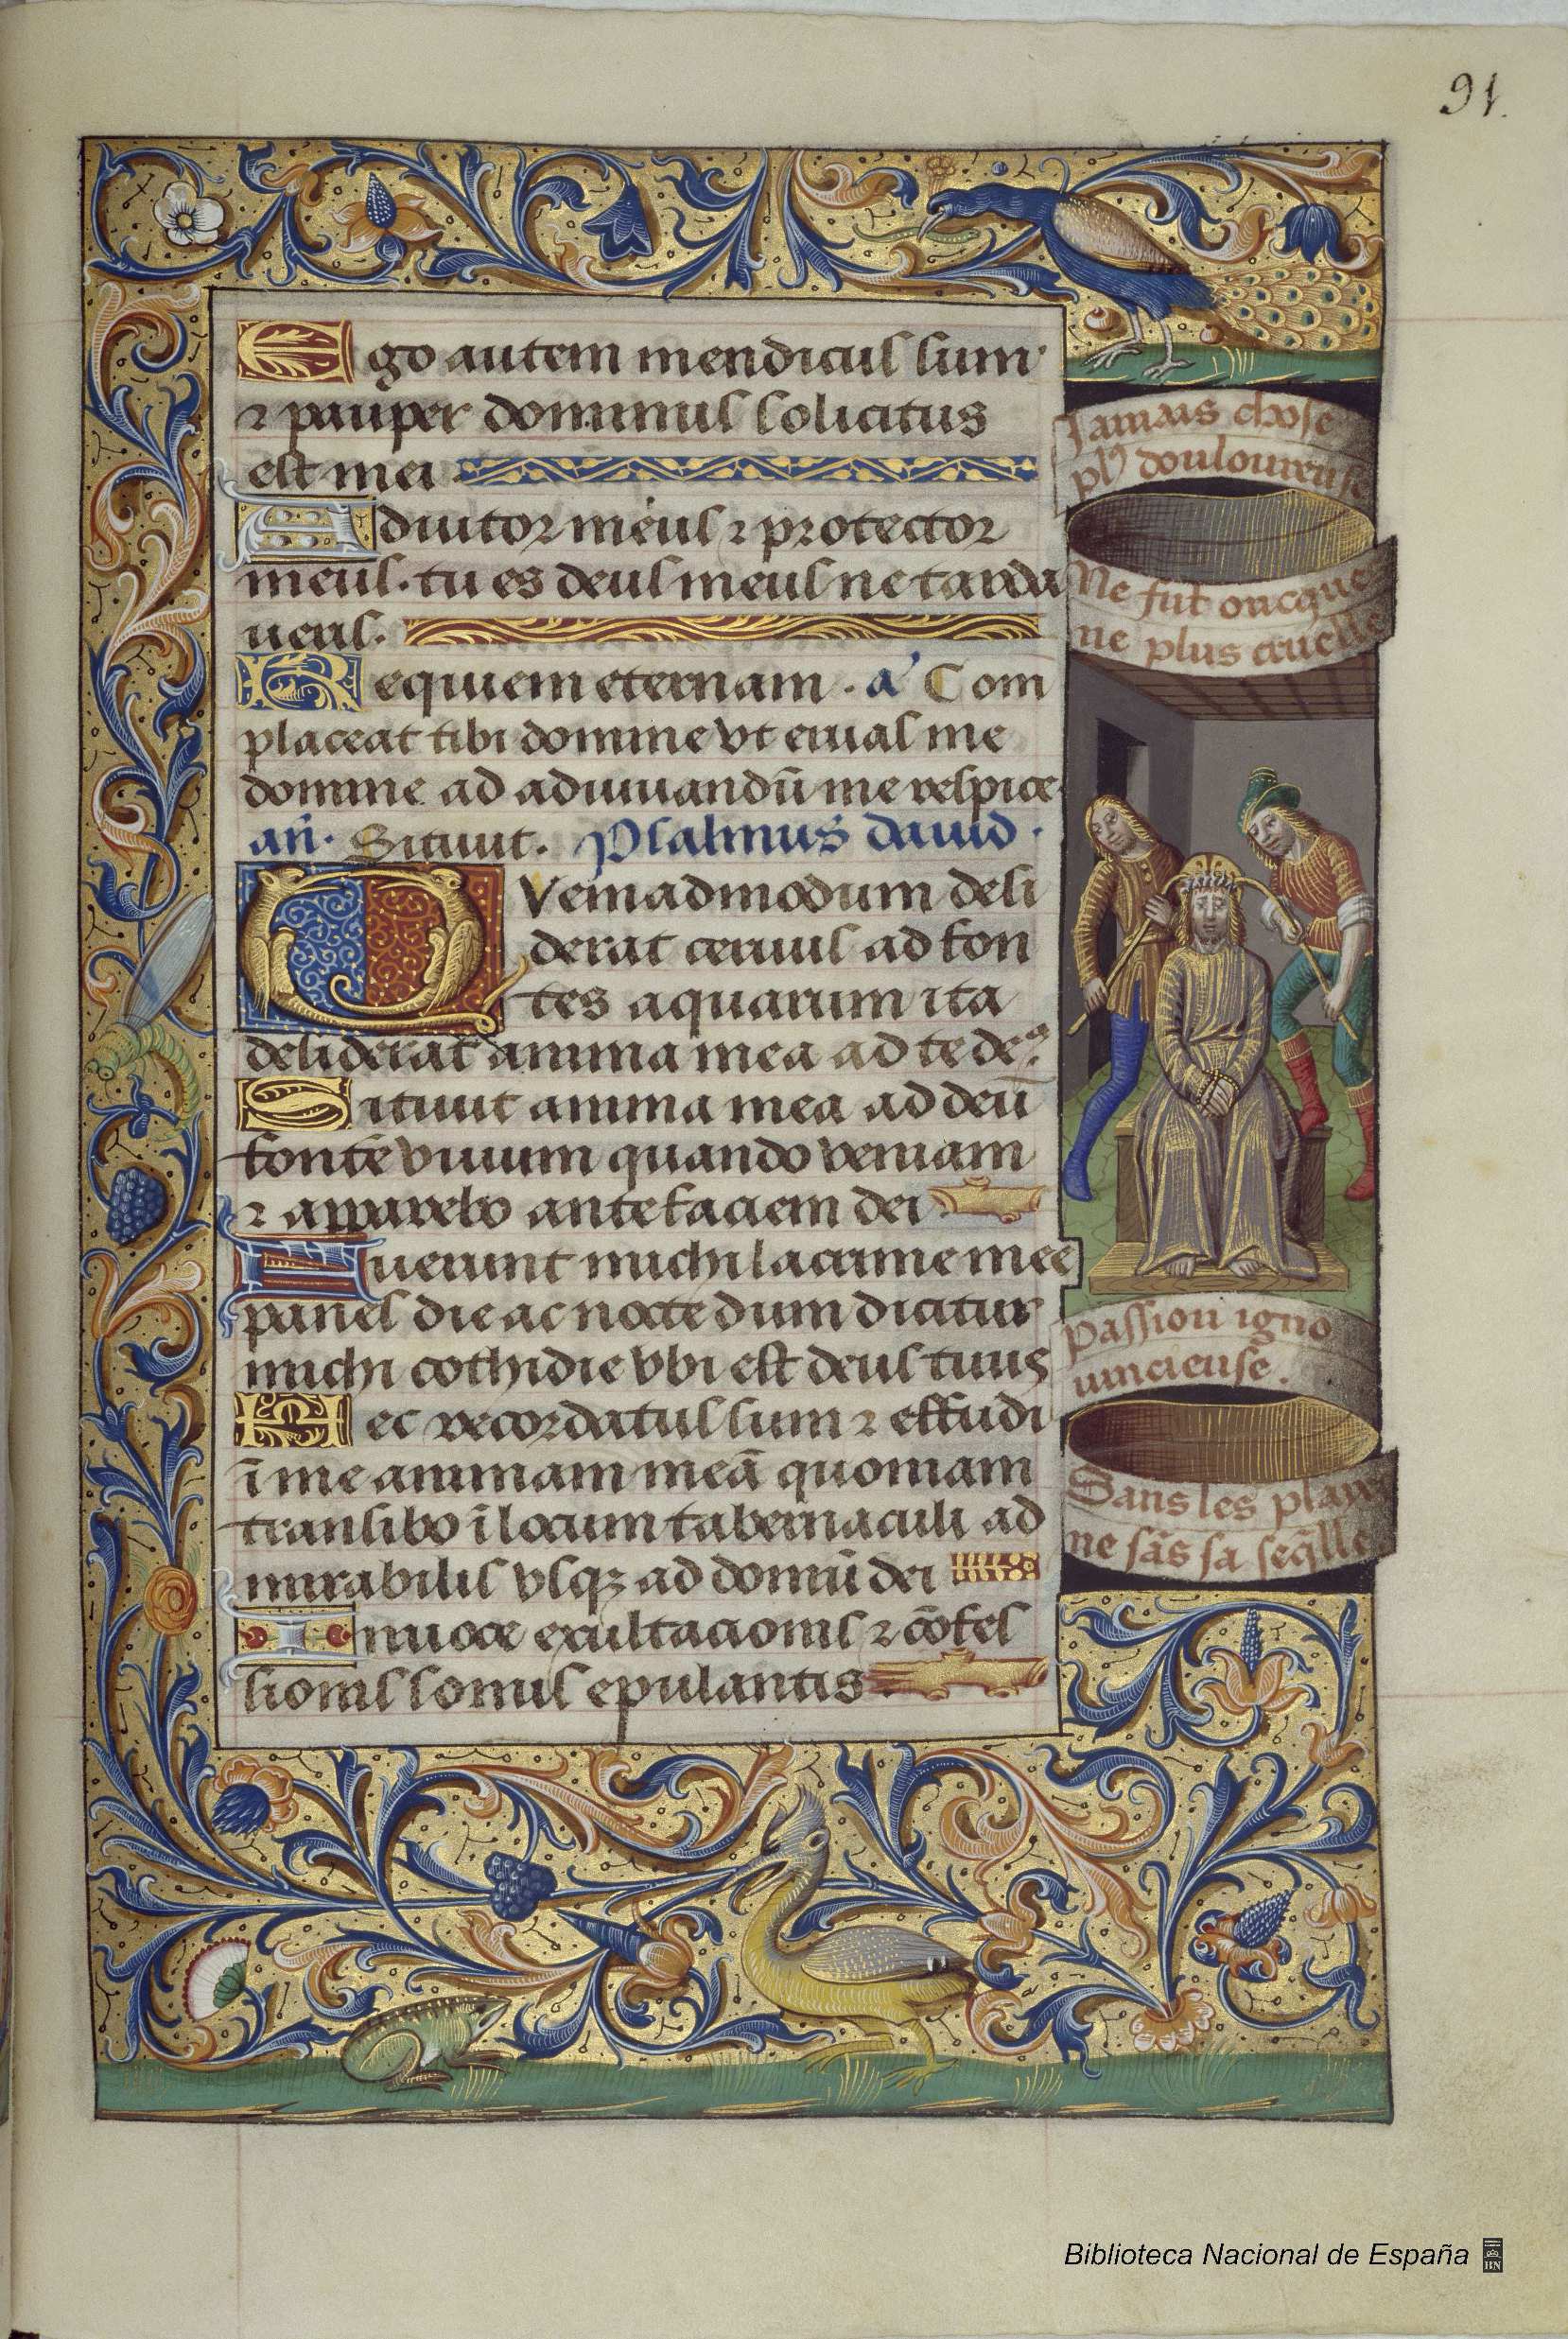 91.
Ego autem mendicus sum
⁊ pauper dominus solicitus
est mei
Adiutor meus ⁊ protector
meus. tu es deus meus ne tarda
ueris.
Requiem eternam. a' Com
placeat tibi domine vt eruias me
domine ad adiuuandū me respice
añ. Sitiuit. Psalmus dauid.
QVemadmodum desi
derat ceruus ad fon
tes aquarum ita
desiderat anima mea ad te deꝰ
Sitiuit anima mea ad deū
fontē viuum quando veniam
⁊ apparebo ante faciem dei
Fuerunt michi lacrime mee
panes die ac nocte dum dicitur
michi cothidie vbi est deus tuus
Hec recordatus sum ⁊ effudi
ī me animam meā quoniam
transibo ī locum tabernaculi ad
mirabilis vsqꝫ ad domū dei
In uoce exultacionis ⁊ cōfes
sionis sonus epulantis
Jamais chose
plꝰ douloureuse
Ne fut oncque
ne plus cruelle
passion igno
mineuse.
Sans les
ne sās sa
Biblioteca Nacional de España
BN